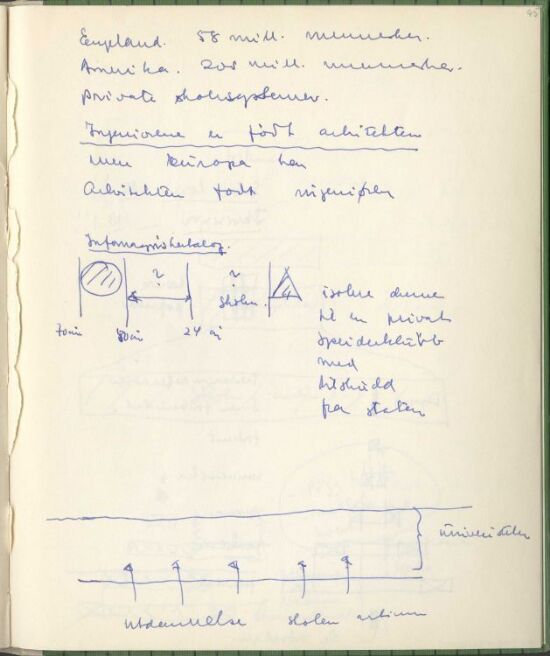 45
England. 58 mill. mennesker.
Amerika. 205 mill. mennesker.
private skolesystemer.
Ingeniørene er født arkitekten
men Europa har
Arkitekten født ingeniøren
Informasjonskatalog.
? ?
skolen
70 min 80 min 24
isolere denne
til en privat
speiderklubb
med
tilskudd
fra staten
Universitetet
utdannelse skolen artium